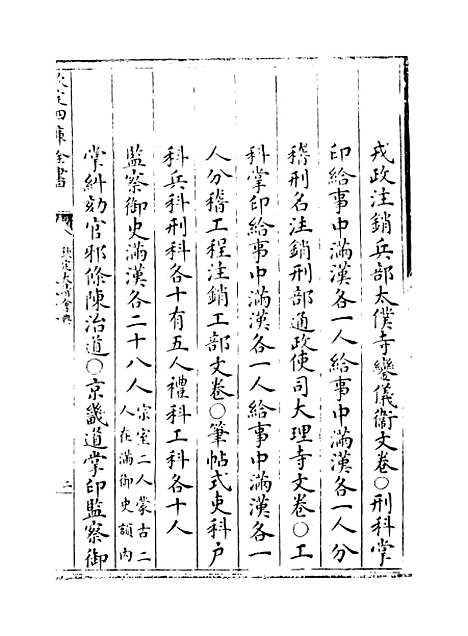 戎政注銷兵部太僕寺鑾儀衛文卷○刑科掌
印給事中滿漢各一人給事中滿漢各一人分
稽刑名注銷刑部通政使司大理寺文卷○工
科掌印給事中滿漢各一人給事中滿漢各一
人分稽工程注銷工部文卷○筆帖式吏科戶
科兵科刑科各十有五人禮科工科各十人
監察御史滿漢各二十八人宗室二人蒙古二
人在滿御史額内
掌糾劾官邪條陳治道○京畿道掌印監察御
欽定四庫全書
欽定大清會典